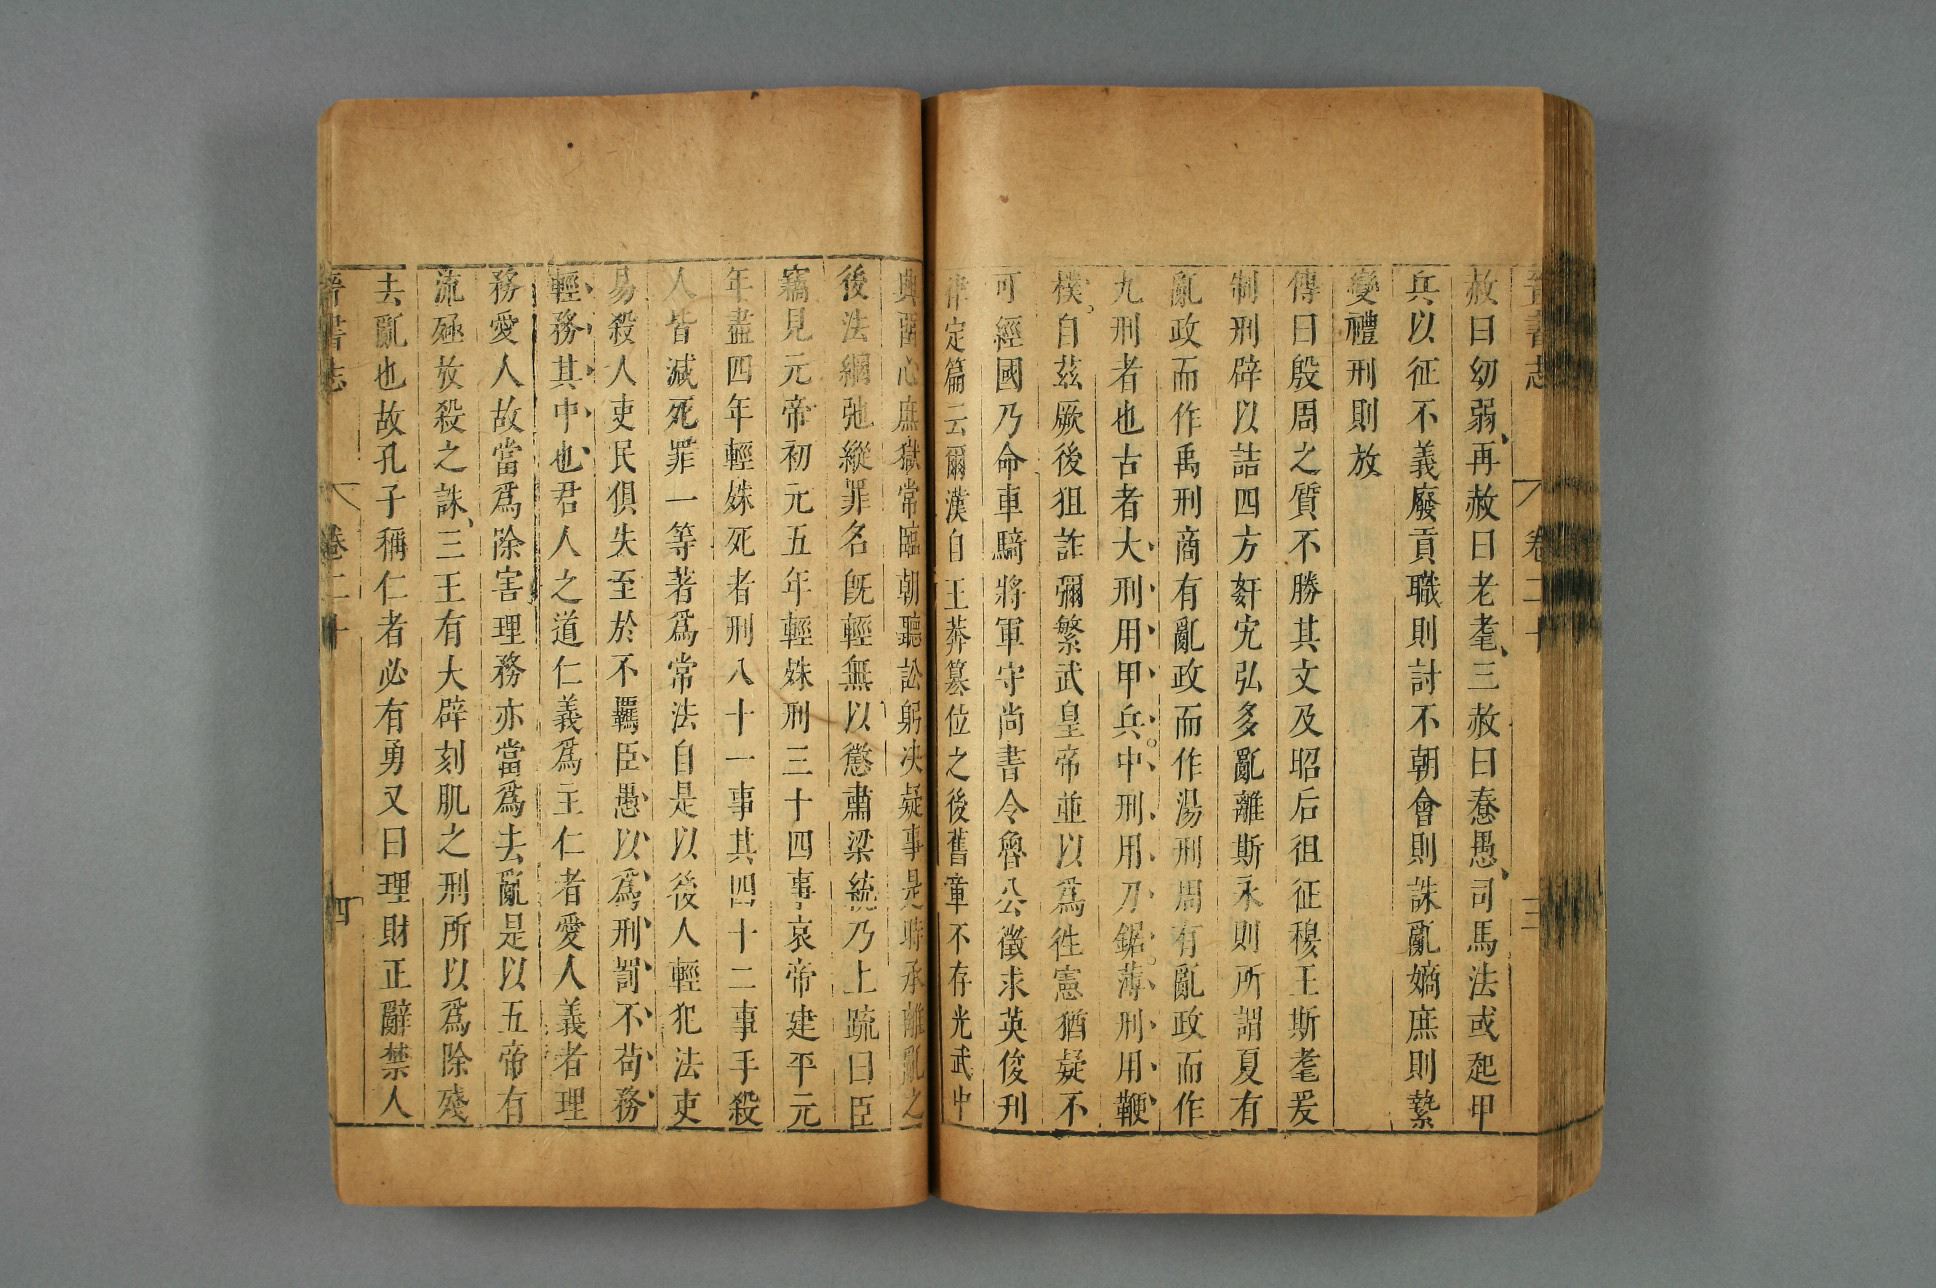 晉書志 卷二十 三
赦曰幼弱再赦曰老耄三赦曰憃愚司馬法或起甲
兵以征不義廢貢職則討不朝會則誅亂嫡庶則縶
變禮刑則放
傳曰殷周之質不勝其文及昭后徂征穆王斯耄爰
制刑辟以詰四方奸宄弘多亂離斯永則所謂夏有
亂政而作禹刑商有亂政而作湯刑周有亂政而作
九刑者也古者大刑用甲兵中刑用刀鋸薄刑用鞭
樸自茲厥後狙詐彌繁武皇帝並以爲徃憲猶疑不
可經國乃命車騎將軍守尚書令魯公徵求英俊刋
律定篇云爾漢自王莽篡位之後舊章不存光武中
興留心庶獄常臨朝聽訟躬决疑事是時承離亂之
後法網弛縱罪名旣輕無以懲肅梁統乃上疏曰臣
竊見元帝初元五年輕姝刑三十四事哀帝建平元
年盡四年輕姝死者刑八十一事其四十二事手殺
人皆減死罪一等著爲常法自是以後人輕犯法吏
易殺人吏民俱失至於不羈臣愚以爲刑罰不苟務
輕務其中也君人之道仁義爲主仁者愛人義者理
務愛人故當爲除害理務亦當爲去亂是以五帝有
流殛放殺之誅三王有大辟刻肌之刑所以爲除殘
去亂也故孔子稱仁者必有勇又曰理財正辭禁人
晉書志 卷二十 四